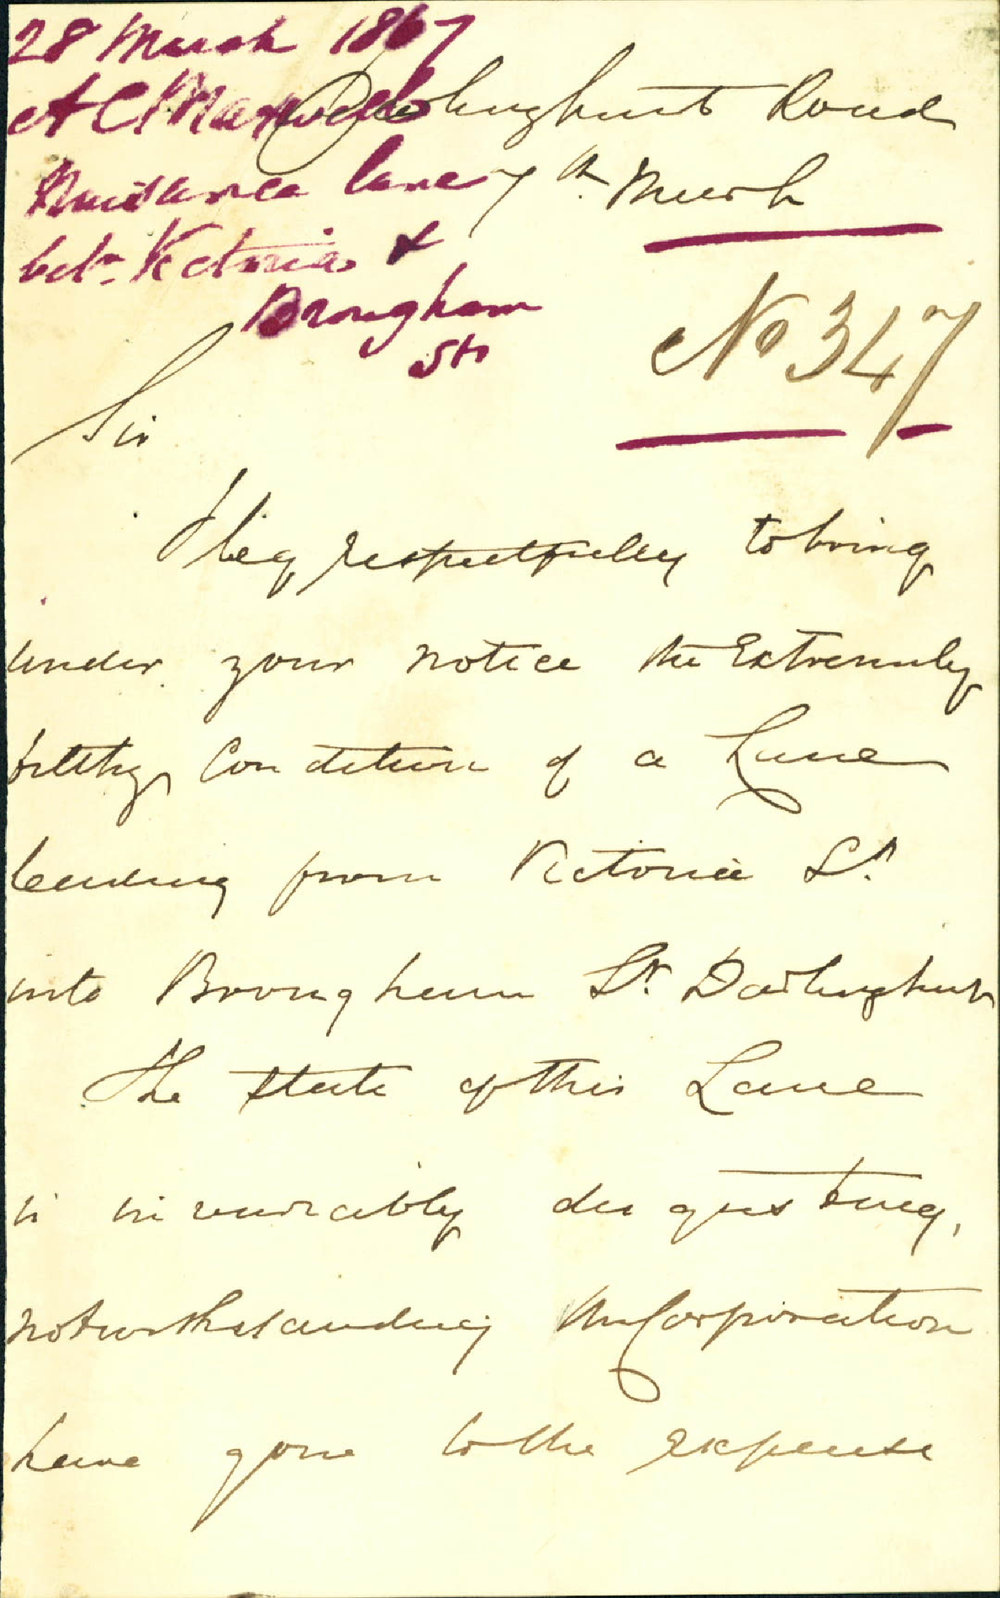 28 March 1867
A C Maxwell
Nuisance lane
betn. Victoria &
Brougham
Sts
Darlinghurst Road
7th March
No 347
Sir
I beg respectfully to bring
under your notice the Extremely
filthy Condition of a Lane
leading from Victoria St.
into Brougham St. Darlinghurst
The state of this Lane
is invariably disgusting,
notwithstanding the Corporation
have gone to the expense